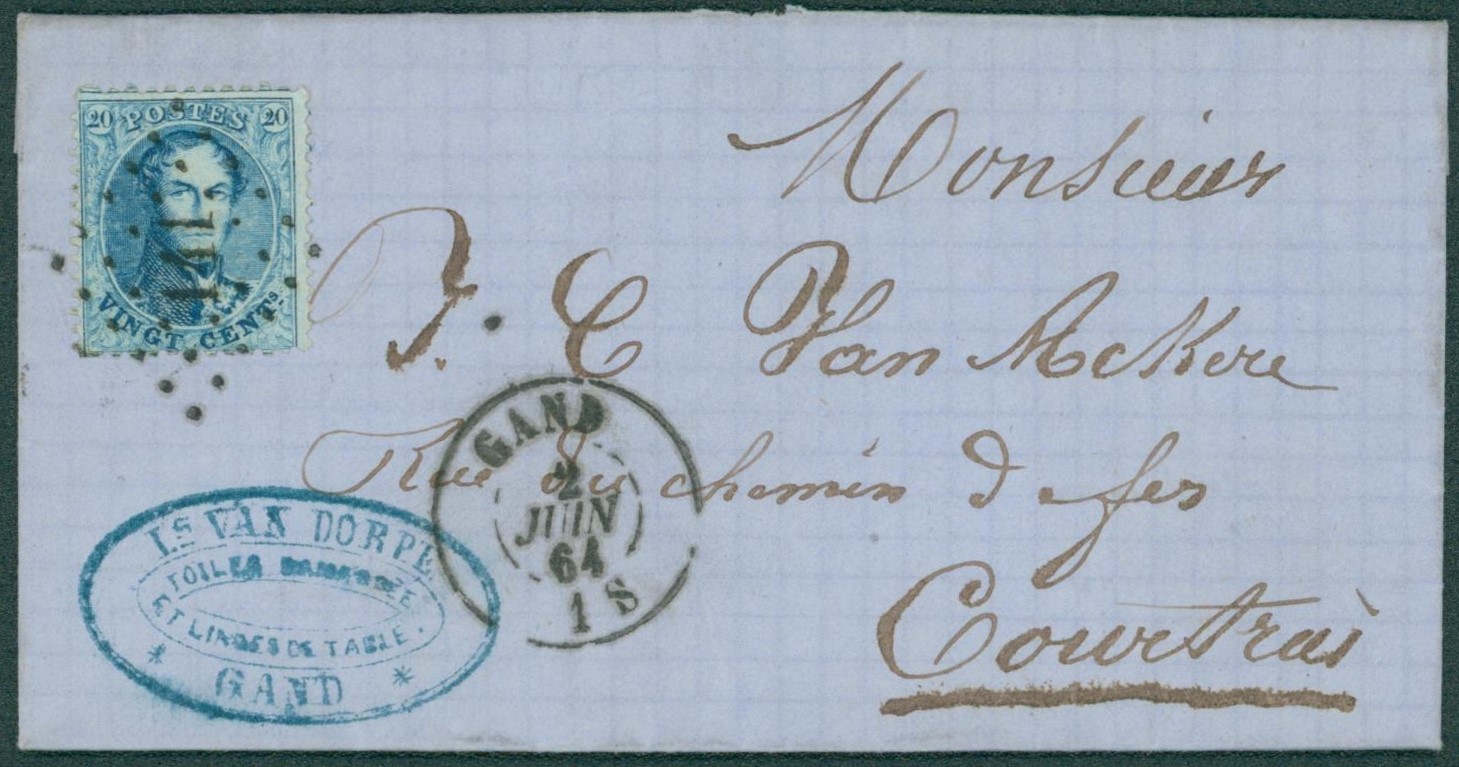 20 POSTES 20
141
VINGT CENTS.
Monsieur
J. C Van Ackere
Rue du chemin d fer
Courtrai
GAND
2
JUIN
64
1 S
Ls VAN DORPE
TOILES
ET LINGES DE TABLE.
* GAND *